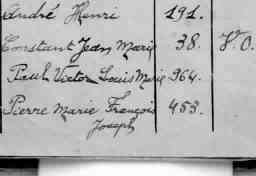 André Henri 191.
Constant Jean Marie 38. V.O.
Paul Victor Louis Marie 964.
Pierre Marie François 453.
Joseph